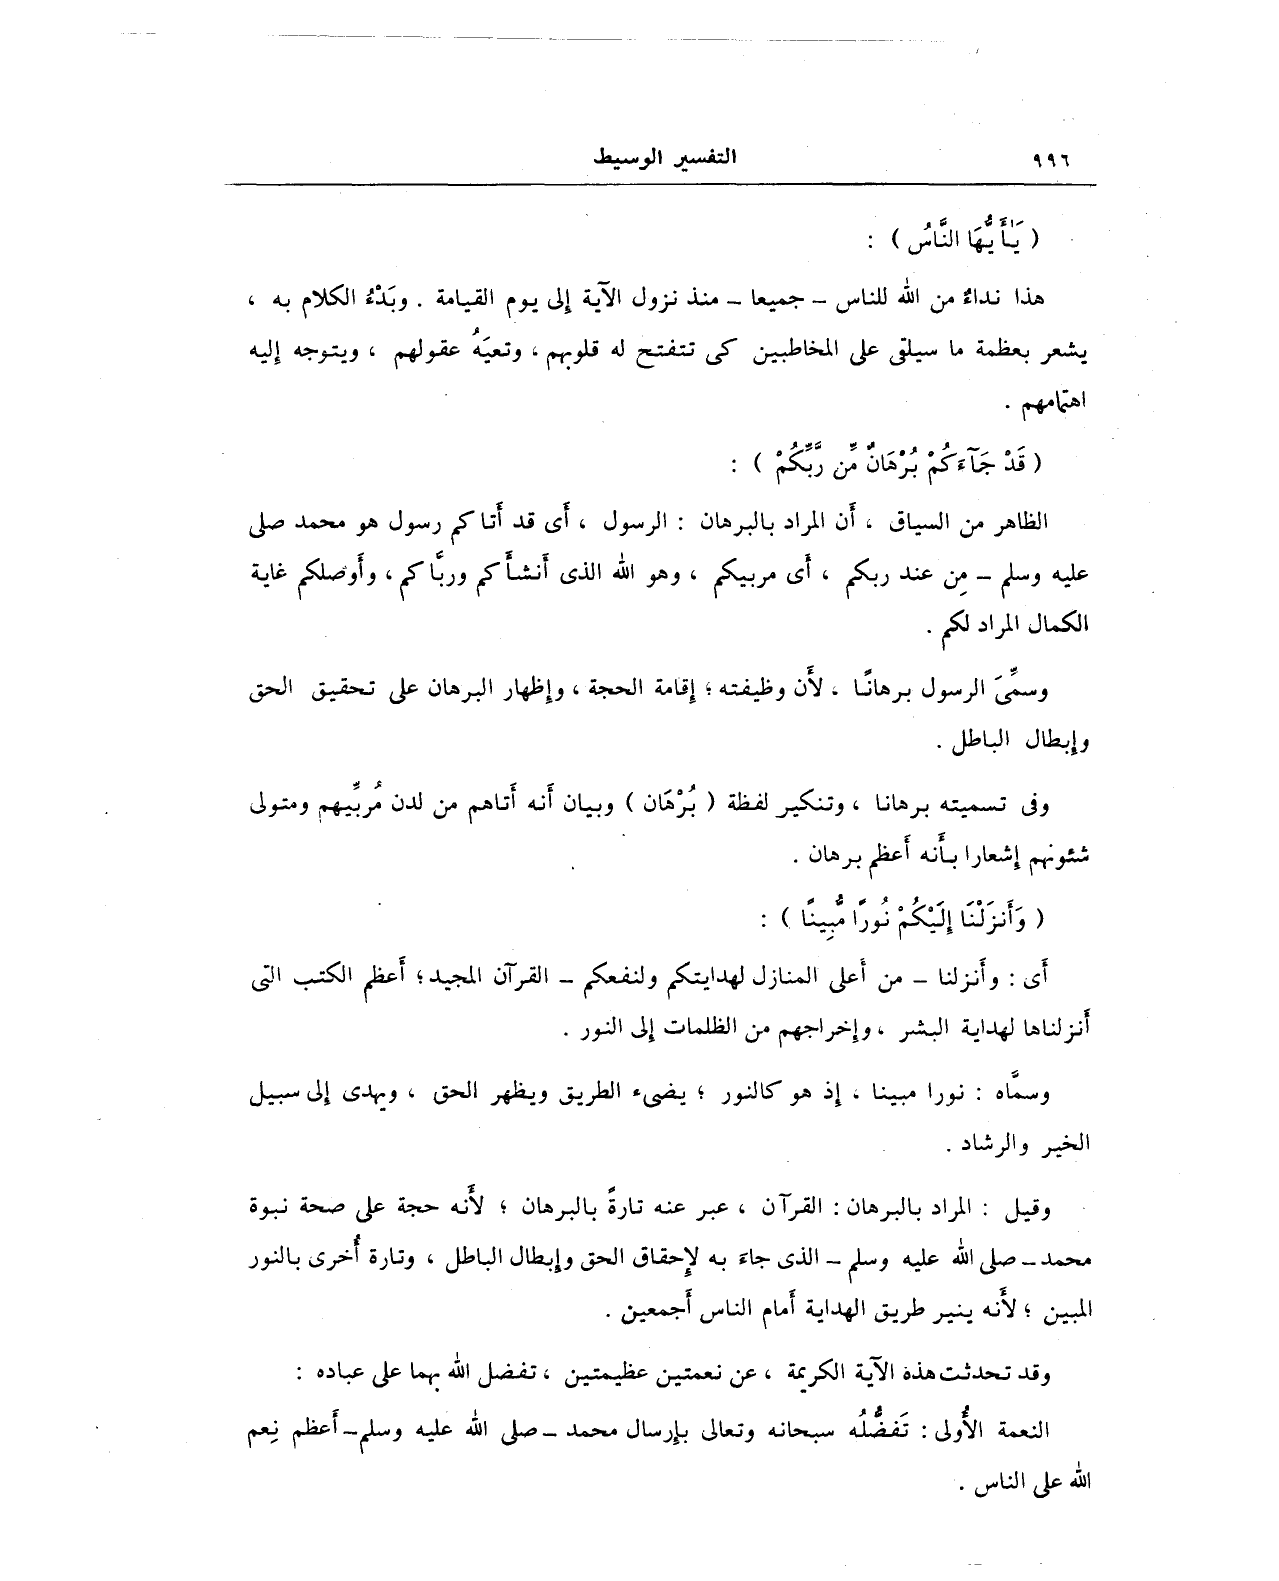 ٩٩٦ التفسير الوسيط
( يَٰأَيُّهَا النَّاسُ ) :
هذا نداءٌ من الله للناس – جميعا – منذ نزول الآية إلى يوم القيامة . وبَدْءُ الكلام به ،
يشعر بعظمة ما سيلقى على المخاطبين كى تتفتح له قلوبهم ، وتعيَهُ عقولهم ، ويتوجه إليه
اهتمامهم .
( قَدْ جَآءَكُمْ بُرْهَانٌ مِّن رَّبِّكُمْ ) :
الظاهر من السياق ، أَن المراد بالبرهان : الرسول ، أَى قد أَتاكم رسول هو محمد صلى
عليه وسلم – مِن عند ربكم ، أَى مربيكم ، وهو الله الذى أَنشأَكم وربَّاكم ، وأَوصلكم غاية
الكمال المراد لكم .
وسمِّىَ الرسول برهانًا ، لأَن وظيفته ؛ إقامة الحجة ، وإظهار البرهان على تحقيق الحق
وإبطال الباطل .
وفى تسميته برهانا ، وتنكير لفظة ( بُرْهَان ) وبيان أَنه أَتاهم من لدن مُربِّيهم ومتولى
شئونهم إشعارا بأَنه أَعظم برهان .
( وَأَنزَلْنَا إِلَيْكُمْ نُورًا مُّبِينًا ) :
أَى : وأَنزلنا – من أَعلى المنازل لهدايتكم ولنفعكم – القرآن المجيد ؛ أَعظم الكتب التى
أَنزلناها لهداية البشر ، وإخراجهم من الظلمات إلى النور .
وسمَّاه : نورا مبينا ، إذ هو كالنور ؛ يضىء الطريق ويظهر الحق ، ويهدى إلى سبيل
الخير والرشاد .
وقيل : المراد بالبرهان : القرآن ، عبر عنه تارةً بالبرهان ؛ لأَنه حجة على صحة نبوة
محمد – صلى الله عليه وسلم – الذى جاءَ به لإحقاق الحق وإبطال الباطل ، وتارة أُخرى بالنور
المبين ؛ لأَنه ينير طريق الهداية أَمام الناس أَجمعين .
وقد تحدثت هذه الآية الكريمة ، عن نعمتين عظيمتين ، تفضل الله بهما على عباده :
النعمة الأُولى : تَفضُّلُه سبحانه وتعالى بإرسال محمد – صلى الله عليه وسلم – أَعظم نِعم
الله على الناس .